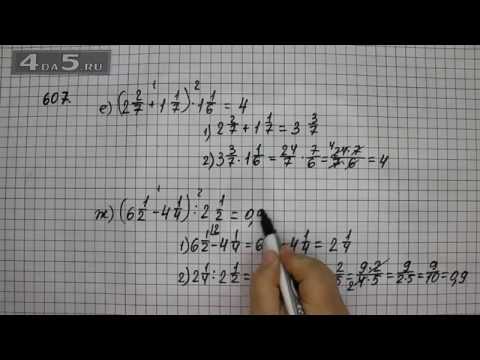 4DA5.RU
607.
е) (2 2/7 + 1 1/7) · 1 1/6 = 4
1) 2 2/7 + 1 1/7 = 3 3/7
2) 3 3/7 · 1 1/6 = 24/7 · 7/6 = 24·7/7·6 = 4
ж) (6 1/2 - 4 1/4) : 2 1/2 = 0,9
1) 6 1/2 - 4 1/4 = 6 - 4 1/4 = 2 1/4
2) 2 1/4 : 2 1/2 = 2/5 = 9·2/4·5 = 9/2·5 = 9/10 = 0,9